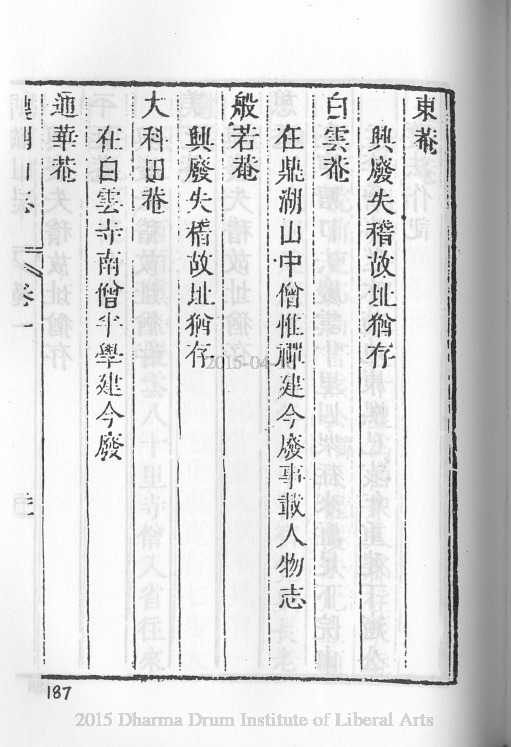 東菴
興廢失稽故址猶存
白雲菴
在鼎湖山中僧惟禪建今廢事載人物志
般若菴
興廢失稽故址猶存
大科田菴
在白雲寺南僧半學建今廢
通華菴
鼎湖山志 卷一
187
2015 Dharma Drum Institute of Liberal Arts